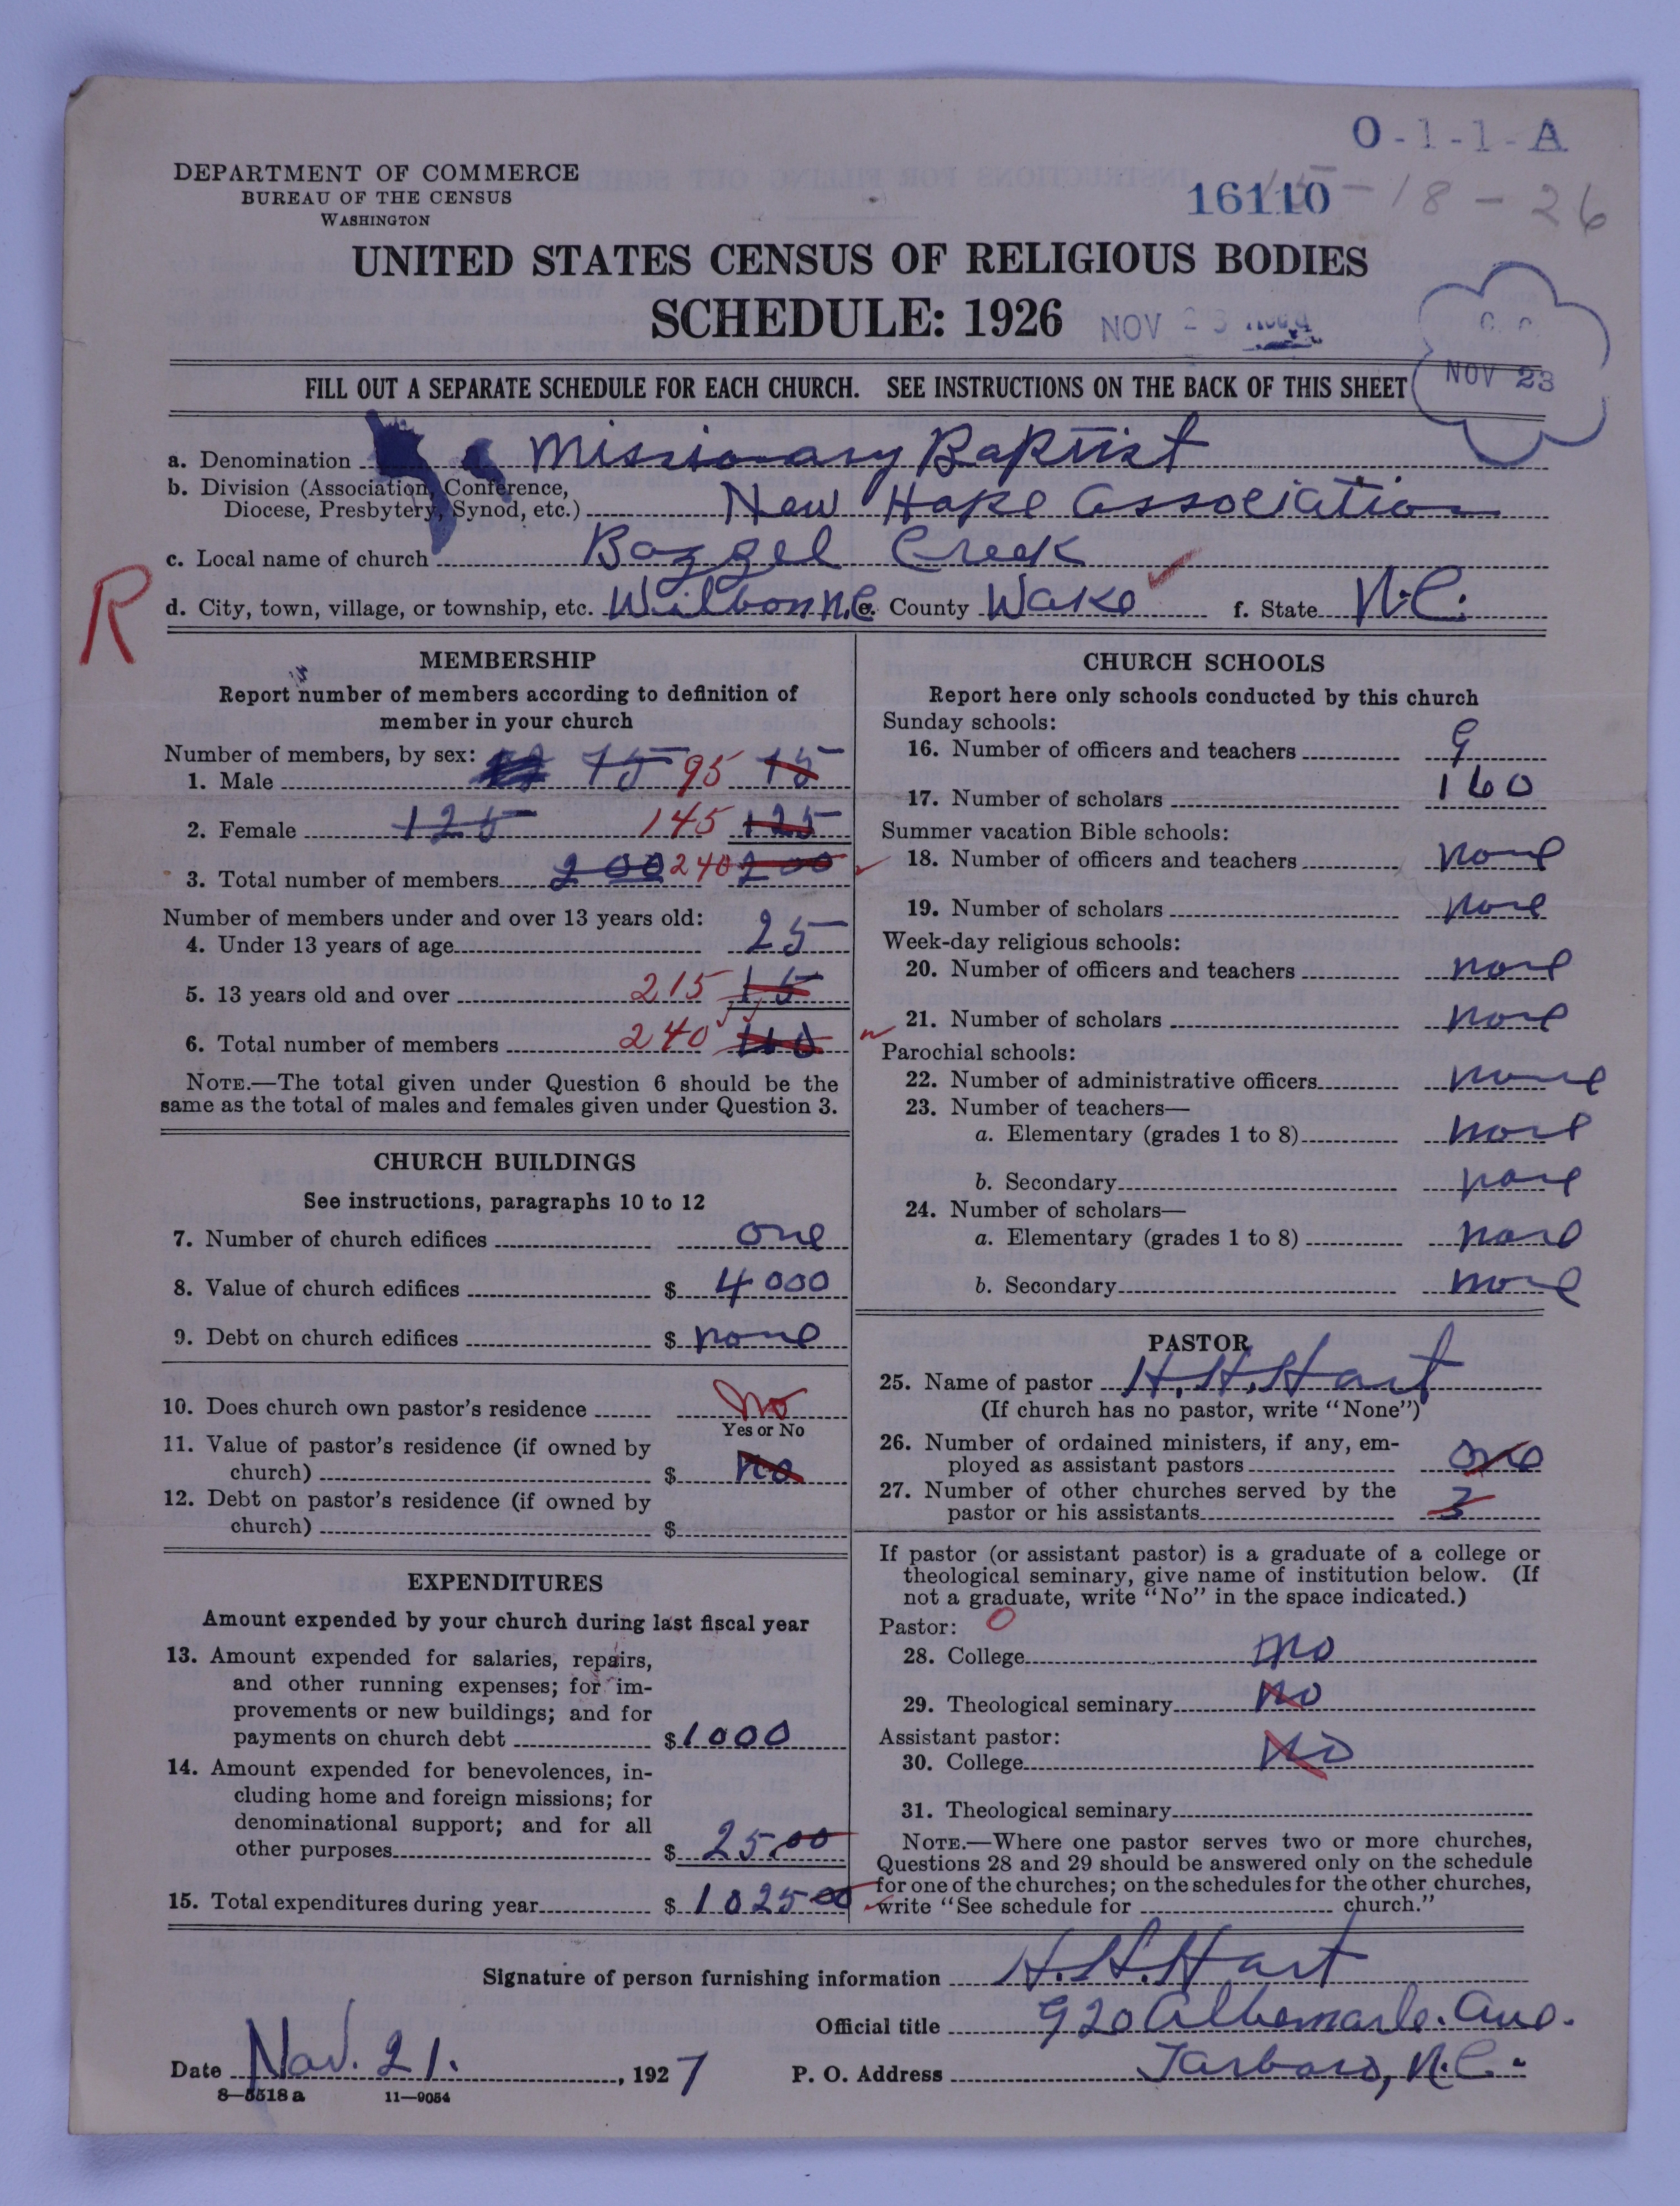 O-1-1-A
16110
15-18-26
DEPARTMENT OF COMMERCE
BUREAU OF THE CENSUS
WASHINGTON
UNITED STATES CENSUS OF RELIGIOUS BODIES
SCHEDULE: 1926
NOV 23
C. C.
NOV 23
FILL OUT A SEPARATE SCHEDULE FOR EACH CHURCH. SEE INSTRUCTIONS ON THE BACK OF THIS SHEET
a. Denomination Missionary Baptist
b. Division (Association, Conference,
Diocese, Presbytery, Synod, etc.) New Hope Association
c. Local name of church Bazzel Creek
R
d. City, town, village, or township, etc. Wilbonn.C e. County Wake f. State N.C.
MEMBERSHIP
Report number of members according to definition of
member in your church
Number of members, by sex:
1. Male 75 95 15
2. Female 125 145 125
3. Total number of members 200 240 200
Number of members under and over 13 years old:
4. Under 13 years of age 25
5. 13 years old and over 215 15
6. Total number of members 240
NOTE.—The total given under Question 6 should be the
same as the total of males and females given under Question 3.
CHURCH BUILDINGS
See instructions, paragraphs 10 to 12
7. Number of church edifices one
8. Value of church edifices $ 4000
9. Debt on church edifices $ none
10. Does church own pastor's residence No
Yes or No
11. Value of pastor's residence (if owned by
church) $ No
12. Debt on pastor's residence (if owned by
church) $
EXPENDITURES
Amount expended by your church during last fiscal year
13. Amount expended for salaries, repairs,
and other running expenses; for im-
provements or new buildings; and for
payments on church debt $ 1000
14. Amount expended for benevolences, in-
cluding home and foreign missions; for
denominational support; and for all
other purposes $ 25.00
15. Total expenditures during year $ 1025 00
CHURCH SCHOOLS
Report here only schools conducted by this church
Sunday schools:
16. Number of officers and teachers 9
17. Number of scholars 160
Summer vacation Bible schools:
18. Number of officers and teachers none
19. Number of scholars none
Week-day religious schools:
20. Number of officers and teachers none
21. Number of scholars none
Parochial schools:
22. Number of administrative officers none
23. Number of teachers—
a. Elementary (grades 1 to 8) none
b. Secondary none
24. Number of scholars—
a. Elementary (grades 1 to 8) none
b. Secondary none
PASTOR
25. Name of pastor H. H. Hart
(If church has no pastor, write "None")
26. Number of ordained ministers, if any, em-
ployed as assistant pastors one
27. Number of other churches served by the
pastor or his assistants 3
If pastor (or assistant pastor) is a graduate of a college or
theological seminary, give name of institution below. (If
not a graduate, write "No" in the space indicated.)
Pastor: O
28. College no
29. Theological seminary no
Assistant pastor:
30. College No
31. Theological seminary
NOTE.—Where one pastor serves two or more churches,
Questions 28 and 29 should be answered only on the schedule
for one of the churches; on the schedules for the other churches,
write "See schedule for church."
Signature of person furnishing information H. H. Hart
Official title 920 Albemarle. Ave.
Date Nov. 21. , 1927 P. O. Address Tarboro, N.C.
8—5518 a 11—9054